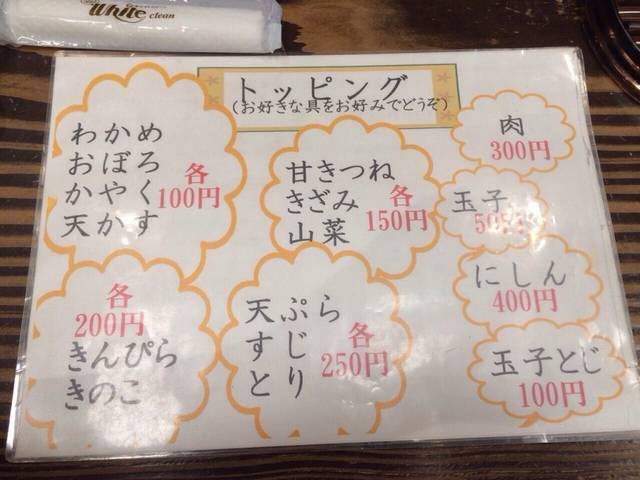 White clean
トッピング
(お好きな具をお好みでどうぞ)
わかめ
おぼろ
かやく
天かす
各
100円
甘きつね
きざみ
山菜
各
150円
肉
300円
玉子
50円
にしん
400円
玉子とじ
100円
各
200円
きんぴら
きのこ
天ぷら
すじ
とり
各
250円